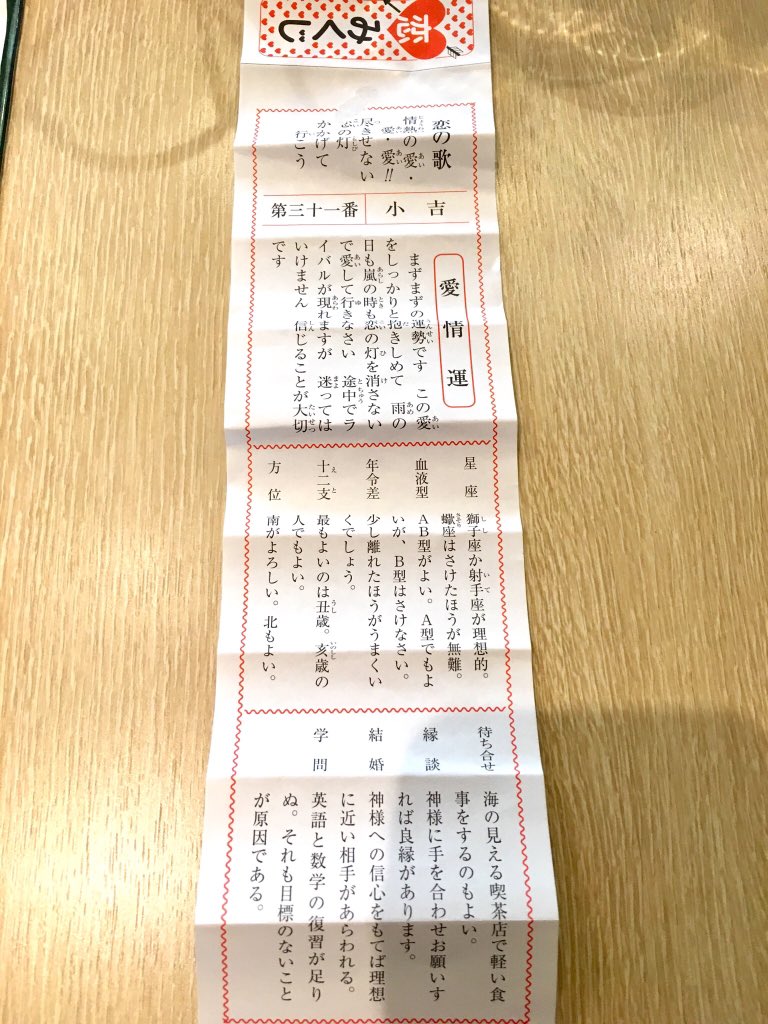 恋みくじ
恋の歌
情熱の愛・
愛・愛!!
尽きせない
恋の灯
かかげて
行こう
小吉
第三十一番
愛情運
まずまずの運勢です この愛
をしっかりと抱きしめて 雨の
日も嵐の時も恋の灯を消さない
で愛して行きなさい 途中でラ
イバルが現れますが 迷っては
いけません 信じることが大切
です
星座 獅子座か射手座が理想的。
蠍座はさけたほうが無難。
血液型 AB型がよい。A型でもよ
いが、B型はさけなさい。
年令差 少し離れたほうがうまくい
くでしょう。
十二支 最もよいのは丑歳。亥歳の
人でもよい。
方位 南がよろしい。北もよい。
待ち合せ 海の見える喫茶店で軽い食
事をするのもよい。
縁談 神様に手を合わせお願いす
れば良縁があります。
結婚 神様への信心をもてば理想
に近い相手があらわれる。
学問 英語と数学の復習が足り
ぬ。それも目標のないこと
が原因である。